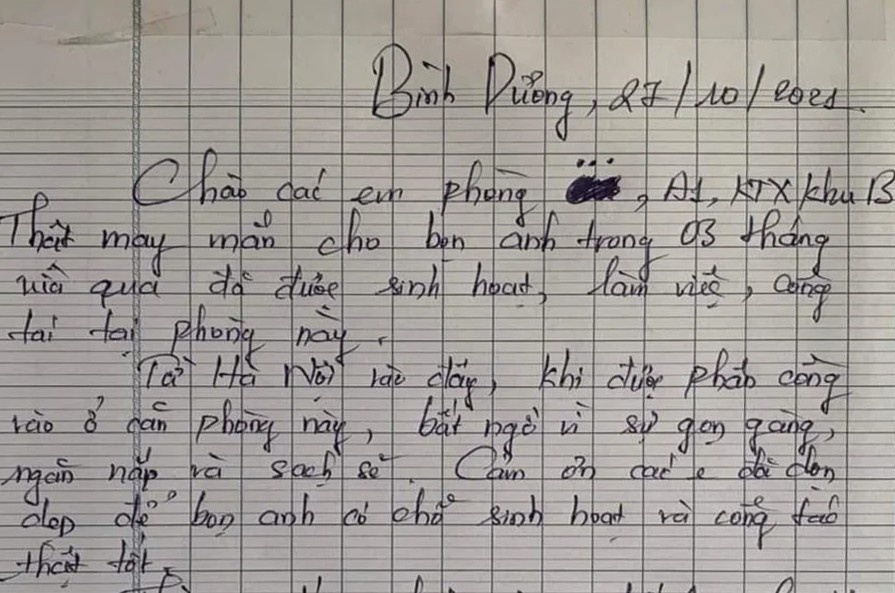 Bình Dương, 27/10/2021
Chào các em phòng ..., A1, KTX khu B
Thật may mắn cho bọn anh trong 03 tháng
vừa qua đã được sinh hoạt, làm việc, công
tác tại phòng này.
Từ Hà Nội vào đây, khi được phân công
vào ở căn phòng này, bất ngờ vì sự gọn gàng,
ngăn nắp và sạch sẽ. Cảm ơn các e đã dọn
dẹp để bọn anh có chỗ sinh hoạt và công tác
thật tốt.